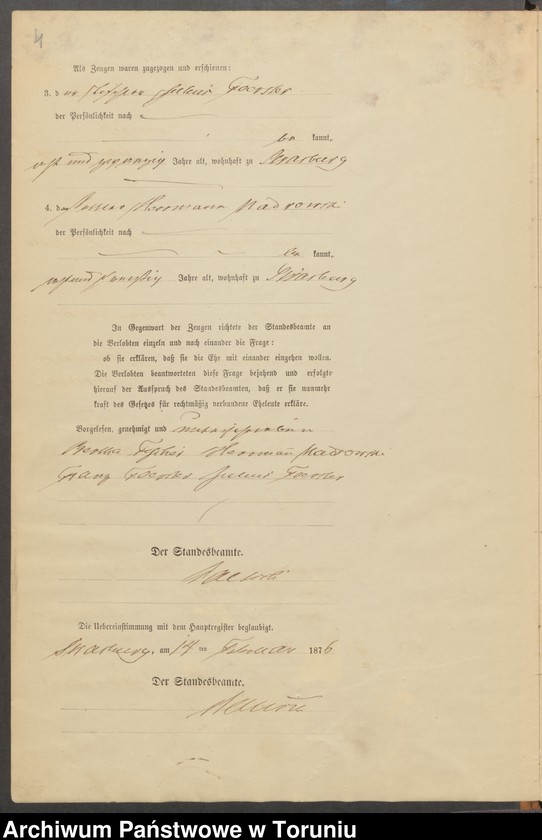 4
Als Zeugen waren zugezogen und erschienen:
3. der Julius Foerster
der Persönlichkeit nach
be kannt,
Jahre alt, wohnhaft zu Strasburg
4. der Hermann Nadrowski
der Persönlichkeit nach
be kannt,
Jahre alt, wohnhaft zu Strasburg
In Gegenwart der Zeugen richtete der Standesbeamte an
die Verlobten einzeln und nach einander die Frage:
ob sie erklären, daß sie die Ehe mit einander eingehen wollen.
Die Verlobten beantworteten diese Frage bejahend und erfolgte
hierauf der Ausspruch des Standesbeamten, daß er sie nunmehr
kraft des Gesetzes für rechtmäßig verbundene Eheleute erkläre.
Vorgelesen, genehmigt und unterschrieben
Hermann Nadrowski
Franz Foerster Julius Foerster
Der Standesbeamte.
Die Uebereinstimmung mit dem Hauptregister beglaubigt.
Strasburg, am 14 ten Februar 1876
Der Standesbeamte.
Archiwum Państwowe w Toruniu